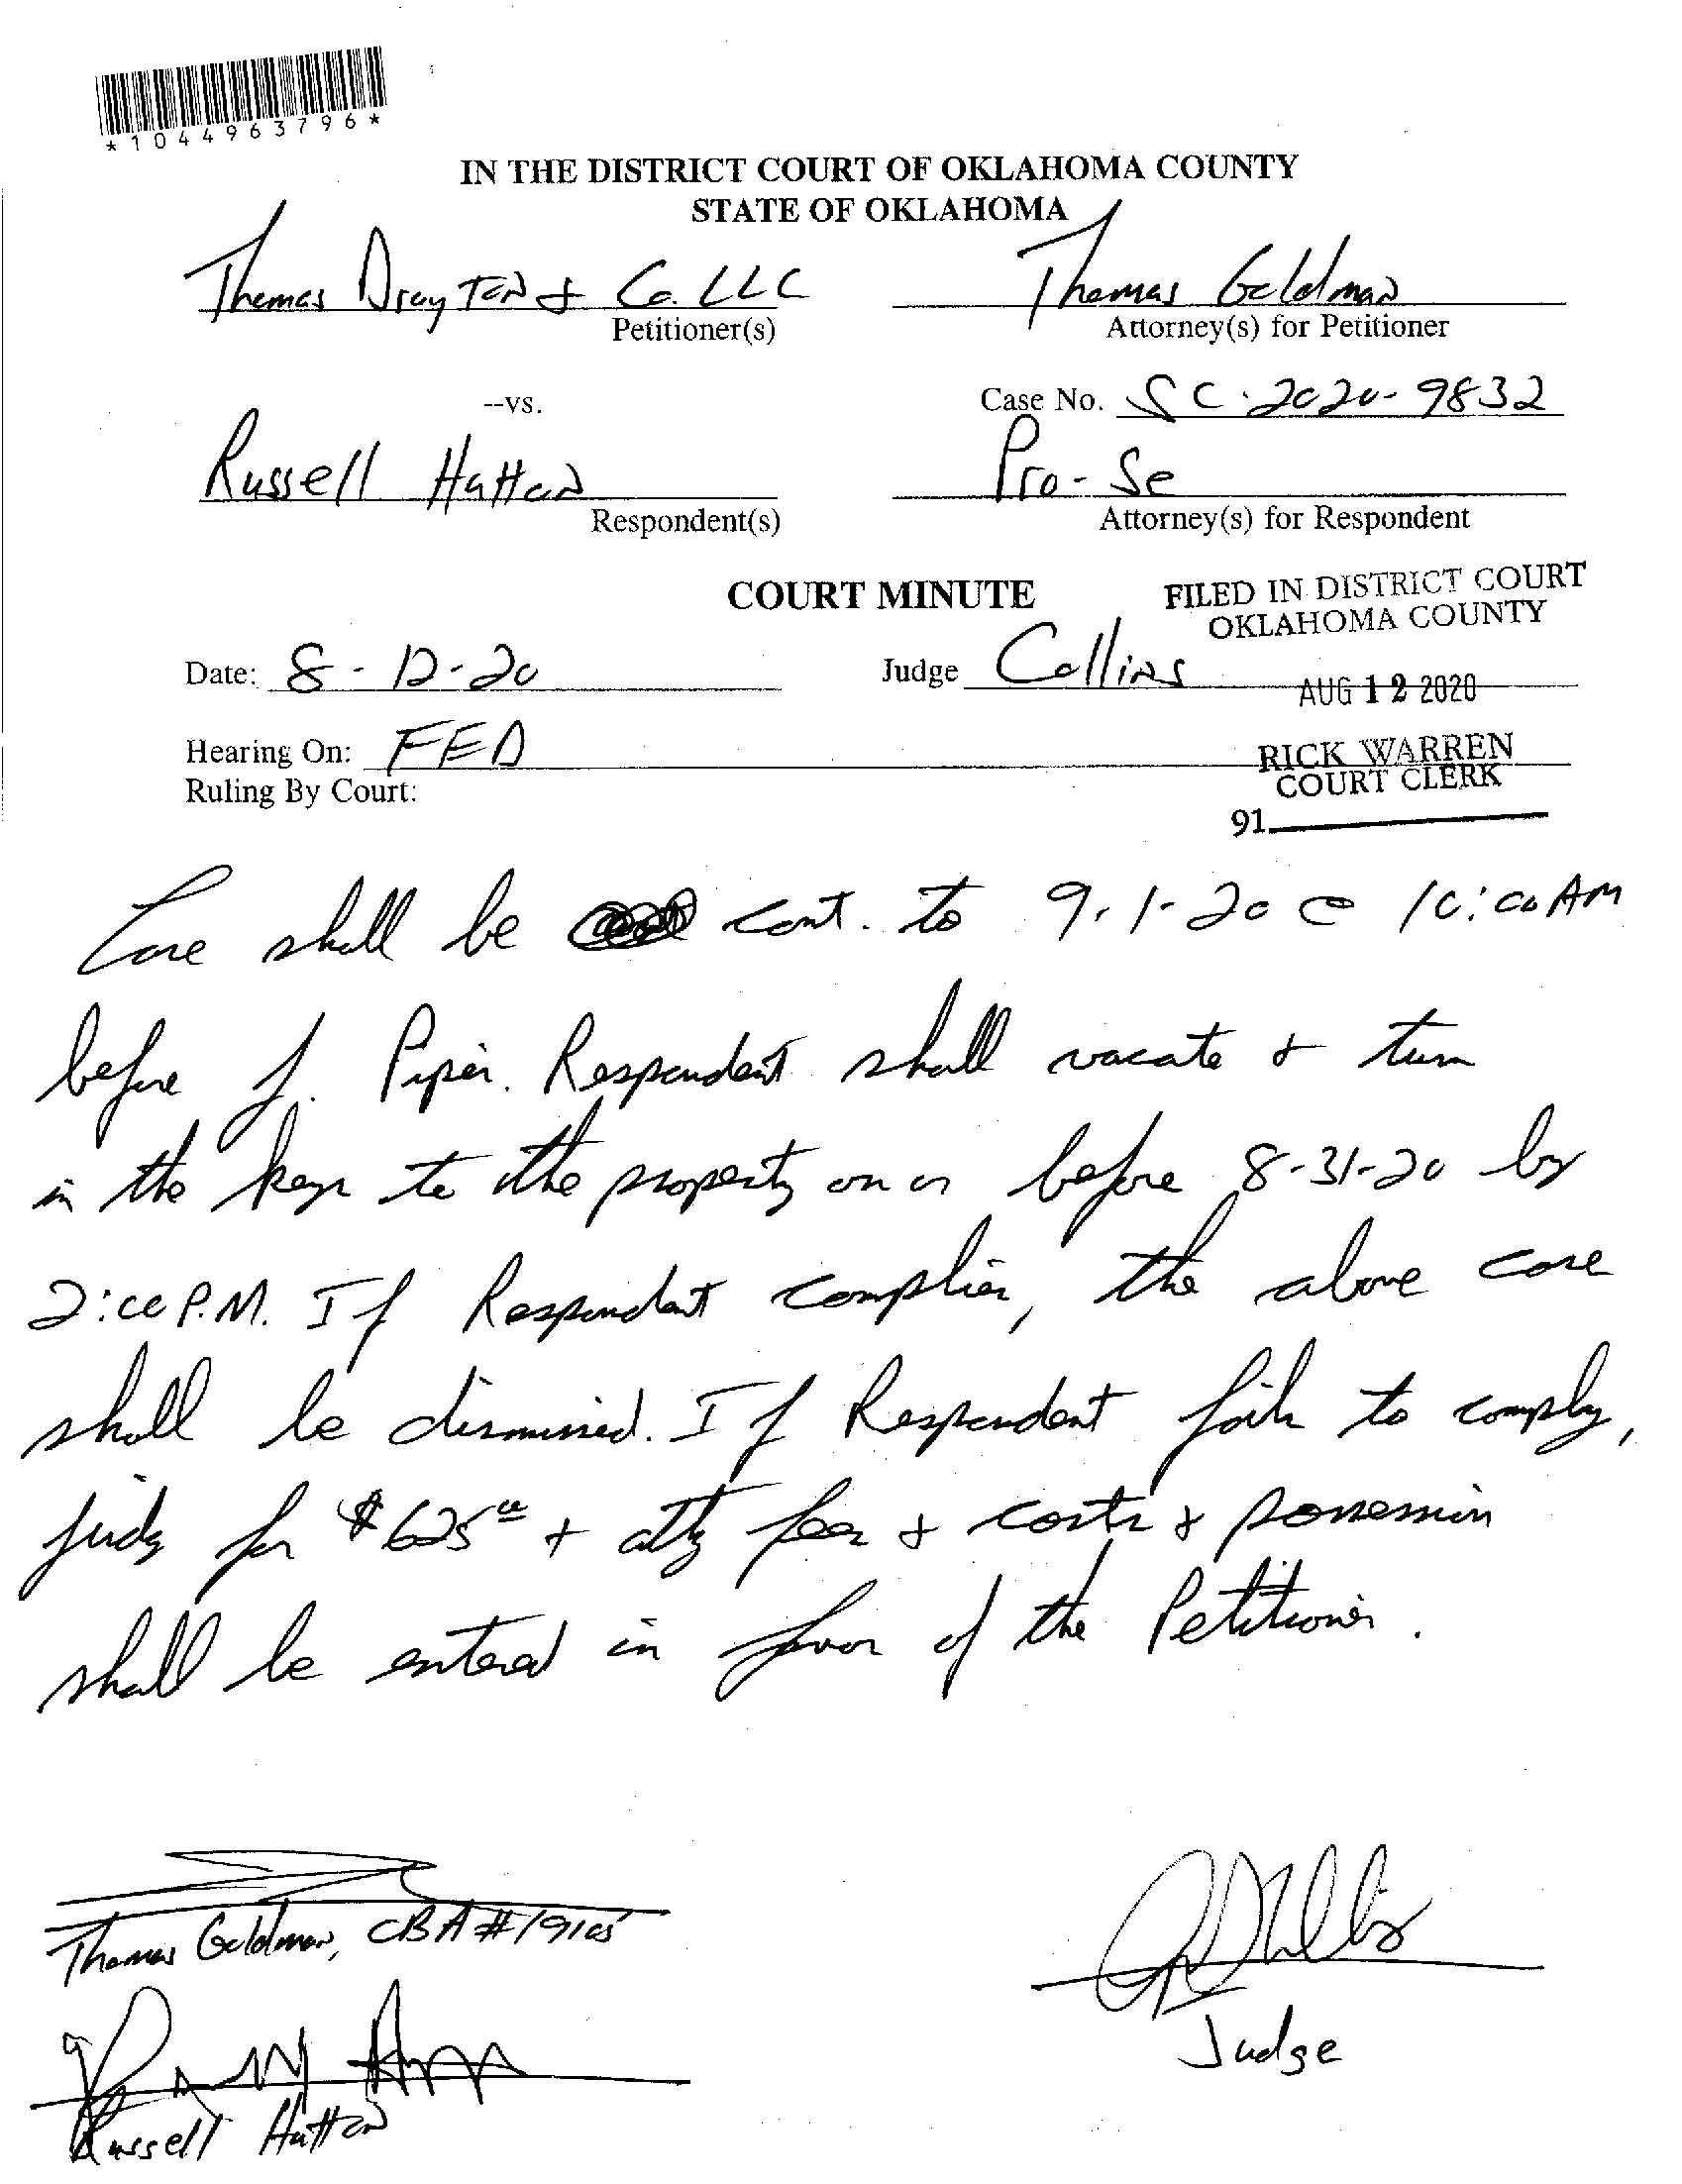 *1044963796*
IN THE DISTRICT COURT OF OKLAHOMA COUNTY
STATE OF OKLAHOMA
Thomas Drayton & Co. LLC Thomas Goldman
Petitioner(s) Attorney(s) for Petitioner
--vs. Case No. SC-2020-9832
Russell Hatton Pro-Se
Respondent(s) Attorney(s) for Respondent
COURT MINUTE FILED IN DISTRICT COURT
OKLAHOMA COUNTY
Date: 8-12-20 Judge Collins AUG 12 2020
Hearing On: FED RICK WARREN
Ruling By Court: COURT CLERK
91
Case shall be cont. to 9-1-20 @ 10:00 AM
before J. Piper. Respondent shall vacate & turn
in the keys to the property on or before 8-31-20 by
2:00 P.M. If Respondent complies, the above case
shall be dismissed. If Respondent fails to comply,
judg for $625.00 + atty fees & costs & possession
shall be entered in favor of the Petitioner.
Thomas Goldman, OBA #19105
Judge
Russell Hatton